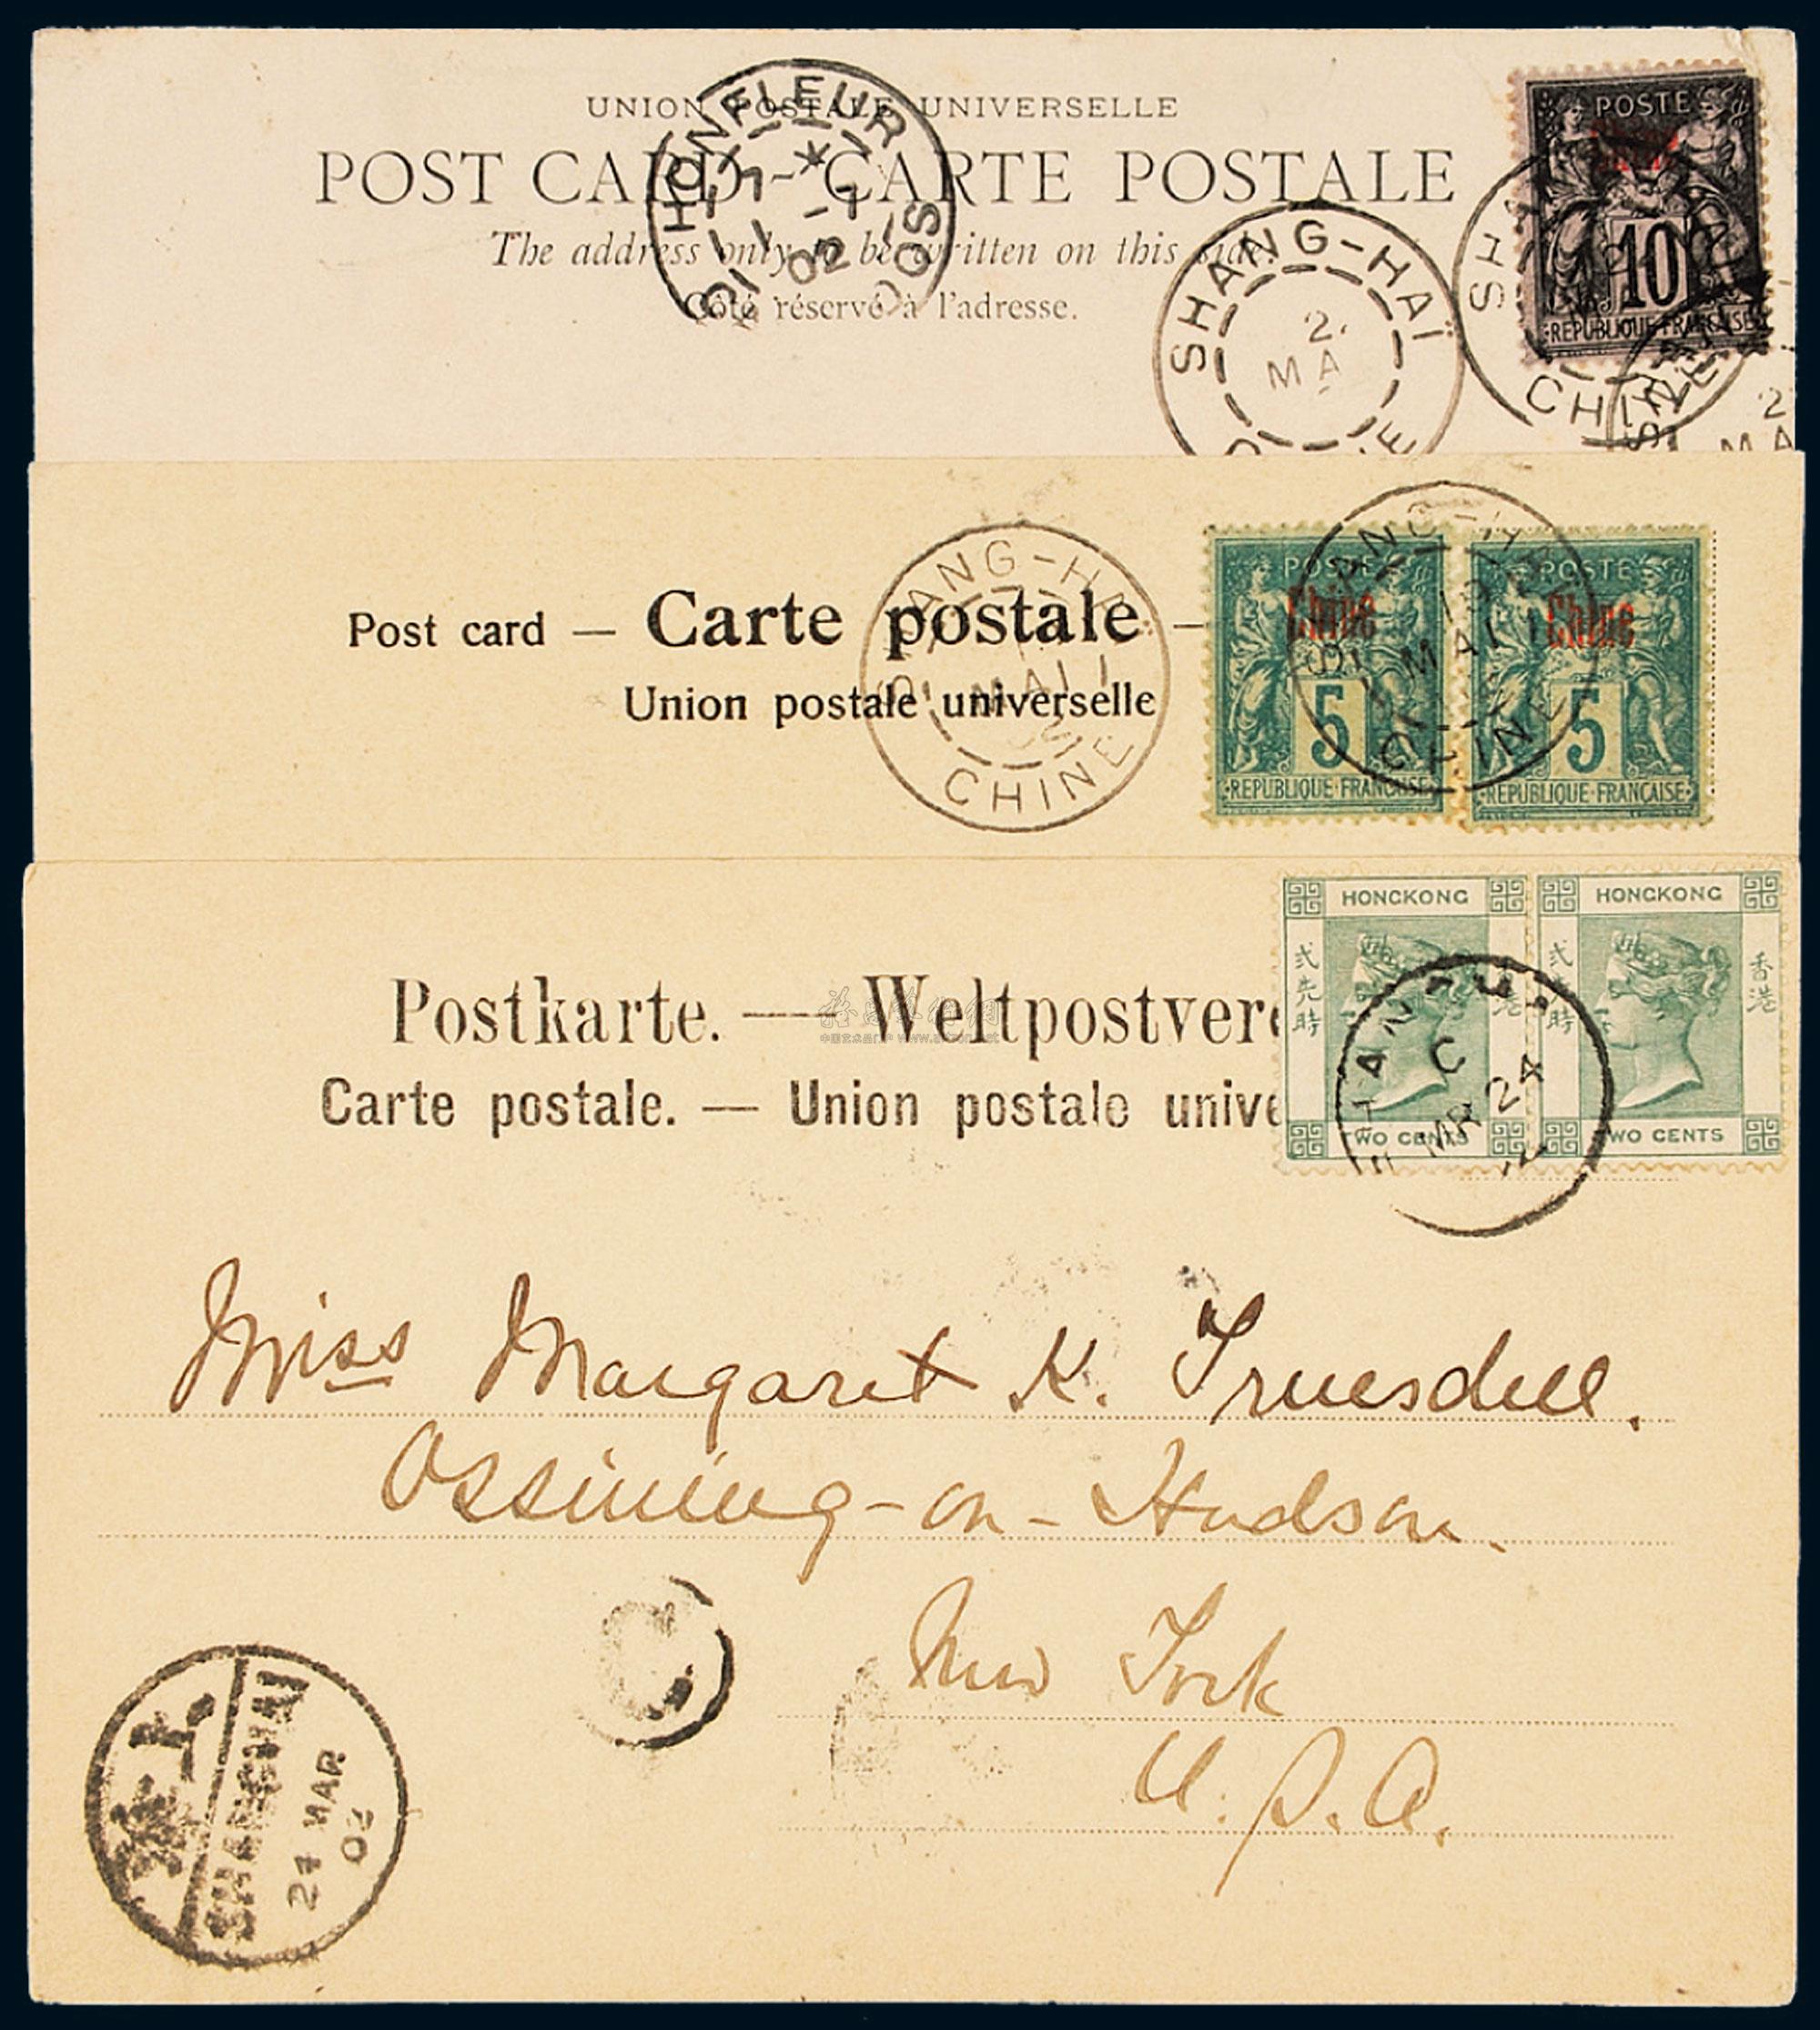 UNION POSTALE UNIVERSELLE
POST CARD - CARTE POSTALE
The address only to be written on this side.
Côté réservé à l'adresse.
HONFLEUR
02
SHANG-HAÏ
2
MA
POSTE
10
REPUBLIQUE FRANÇAISE
CHINE
2
MA
Post card — Carte postale —
Union postale universelle
SHANG-HAÏ
MAI
02
CHINE
POSTE
Chine
5
REPUBLIQUE FRANÇAISE
POSTE
Chine
5
REPUBLIQUE FRANÇAISE
MAI
CHINE
HONGKONG
弍先時
港
TWO CENTS
HONGKONG
時
香港
TWO CENTS
C
MR 24
Postkarte. — Weltpostvere
Carte postale. — Union postale unive
Miss Margaret K. Truesdell.
Ossining-on-Hudson.
New York
U.S.A.
SHANGHAI
24 MAR
02